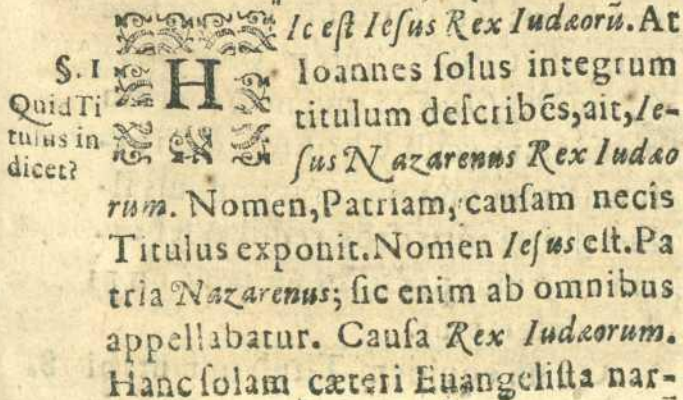 §. I
Quid Ti
tulus in
dicet?
HIc est Iesus Rex Iudæorũ. At
Ioannes ſolus integrum
titulum deſcribẽs, ait, Ie-
ſus Nazarenus Rex Iudæo
rum. Nomen, Patriam, cauſam necis
Titulus exponit. Nomen Ieſus eſt. Pa
tria Nazarenus; ſic enim ab omnibus
appellabatur. Cauſa Rex Iudæorum.
Hanc ſolam cæteri Euangeliſta nar-